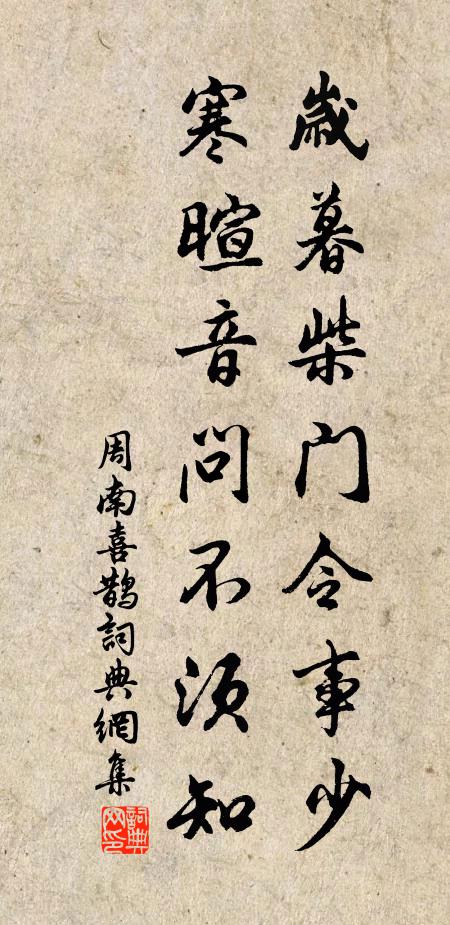 歲暮柴門令事少
寒暄音問不須知
周南喜鵲詞典網集
詞典網印